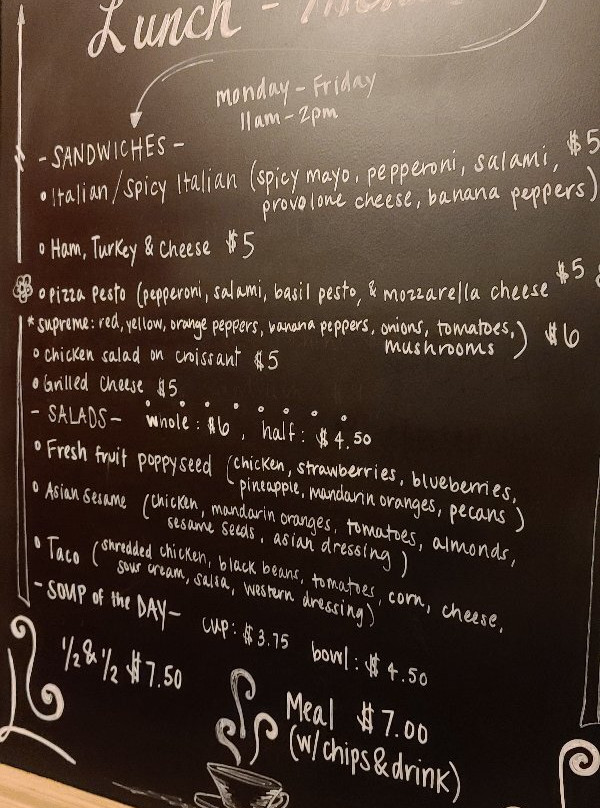 Lunch - Menu
monday - Friday
11am - 2pm
- SANDWICHES -
Italian/Spicy Italian (spicy mayo, pepperoni, salami, $5
provolone cheese, banana peppers)
Ham, Turkey & Cheese $5
pizza pesto (pepperoni, salami, basil pesto, & mozzarella cheese $5
*supreme: red, yellow, orange peppers, banana peppers, onions, tomatoes,
mushrooms) $6
chicken salad on croissant $5
Grilled Cheese $5
- SALADS - whole: $6, half: $4.50
Fresh fruit poppyseed (chicken, strawberries, blueberries,
pineapple, mandarin oranges, pecans)
Asian Sesame (chicken, mandarin oranges, tomatoes, almonds,
sesame seeds, asian dressing)
Taco (shredded chicken, black beans, tomatoes, corn, cheese,
sour cream, salsa, western dressing)
- SOUP of the DAY - cup: $3.75 bowl: $4.50
1/2 & 1/2 $7.50
Meal $7.00
(w/chips & drink)